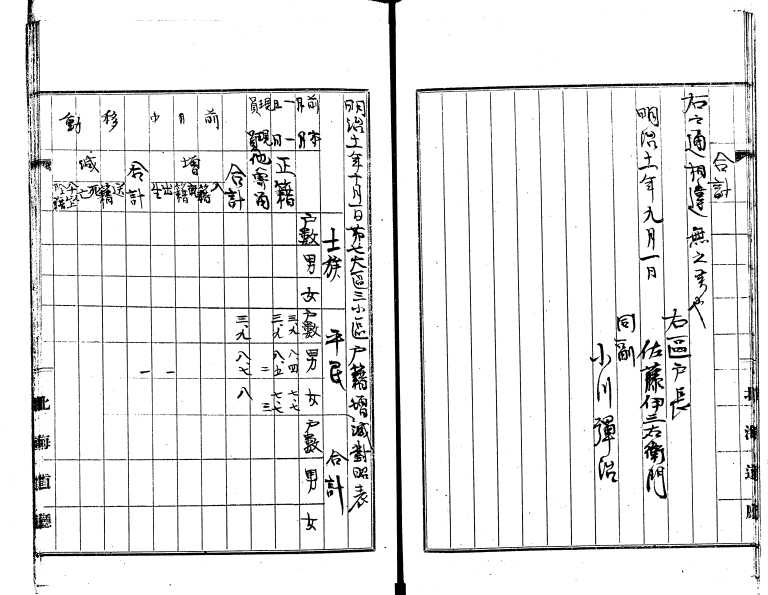 合計
右之通相違無之候也
明治十一年九月一日
右區戸長
佐藤伊三右衛門
同副
小川彈治
北海道廳
明治十一年十月一日第七大區三小區戸籍増減對照表
士族 平民 合計
戸數 男 女 戸數 男 女 戸數 男 女
前月一日現員
本月一日現員
正籍 三九 八四 七七
三九 八五 七七
他寄留 二 三
合計 三九 八七 八
前月中移動
増
入籍
出生
一
合計
一
減
送籍
死亡
北海道廳